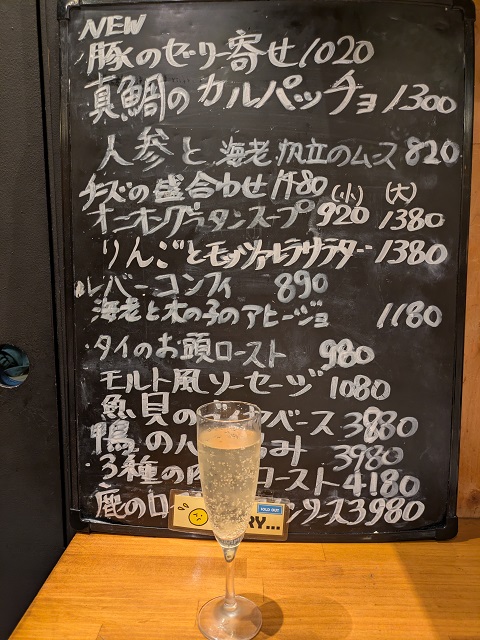 NEW
豚のゼリー寄せ1020
真鯛のカルパッチョ1300
人参と海老帆立のムース820
チーズの盛合わせ1480 (小) (大)
オニオングラタンスープ920 1380
りんごとモッツァレラサラダ 1380
レバーコンフィ 890
海老と木の子のアヒージョ 1180
・タイのお頭ロースト 980
モルト風ソーセージ 1080
魚貝の ベース3880
鴨のハ み 3980
・3種の ロースト4180
鹿のロ ックス3980
SOLD OUT
RY...